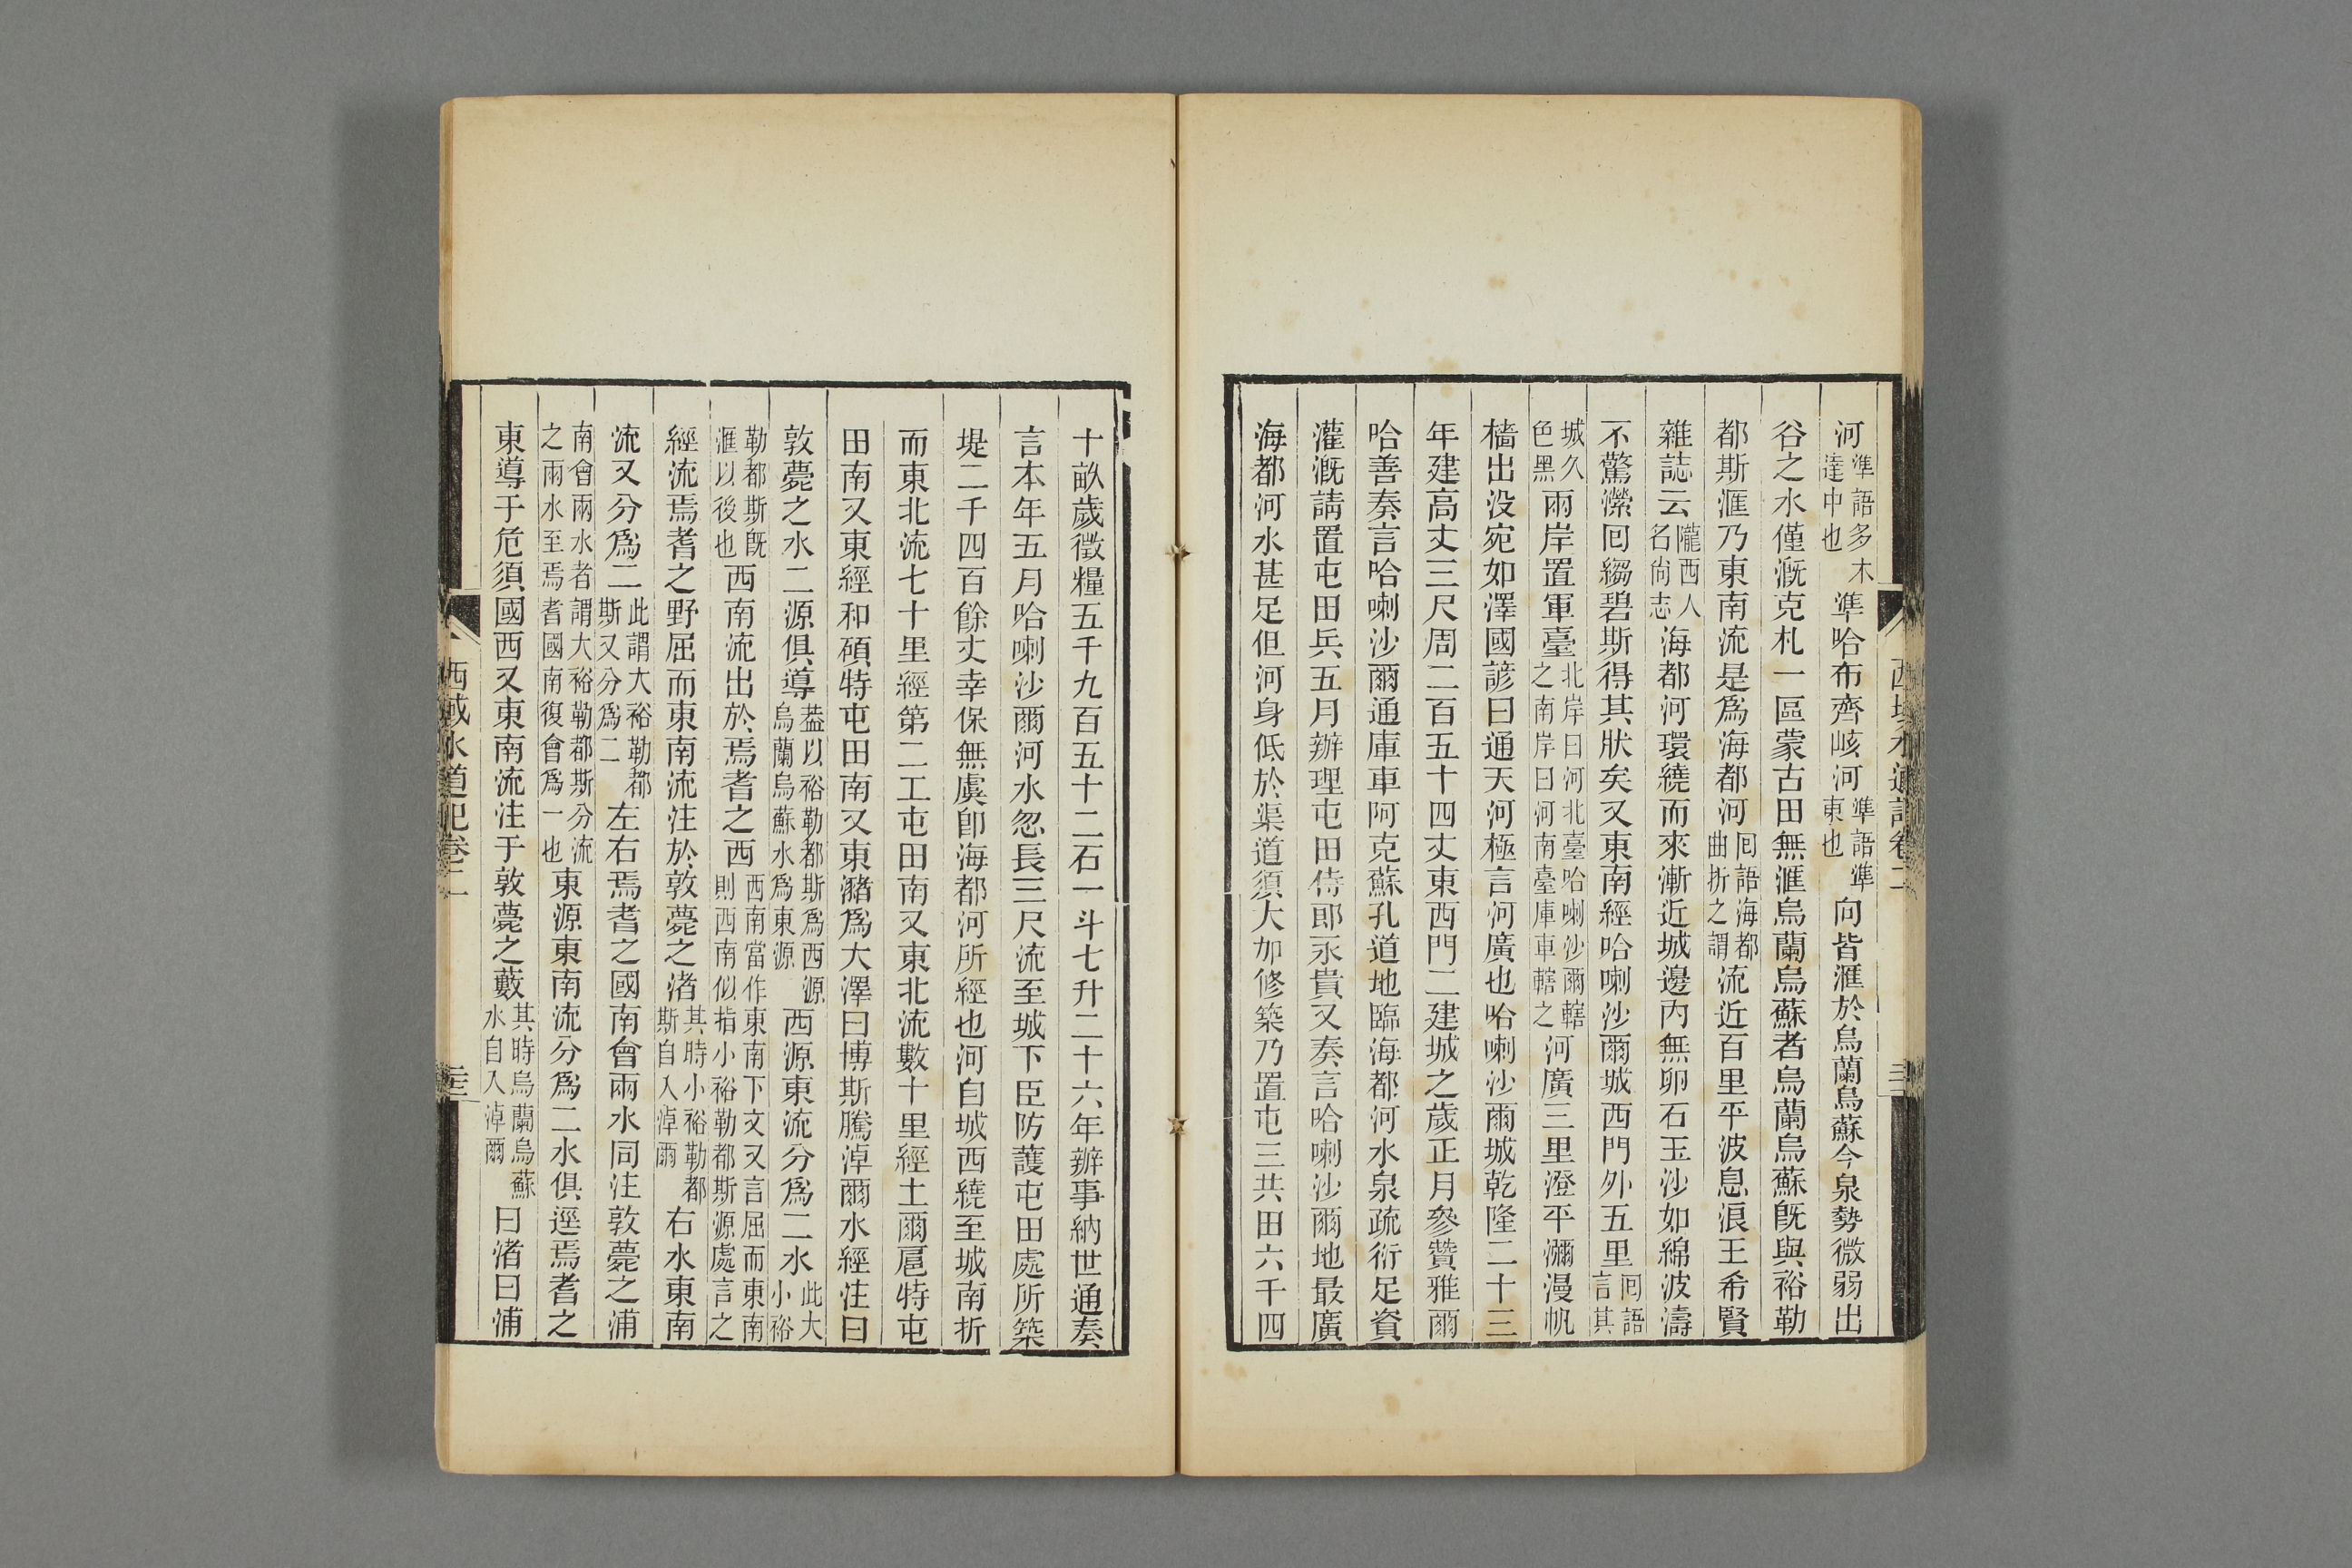 河準語多木達中也準哈布齊峐河準語準東也向皆滙於烏蘭烏蘇今泉勢微弱出
谷之水僅溉克札一區蒙古田無滙烏蘭烏蘇者烏蘭烏蘇旣與裕勒
都斯滙乃東南流是爲海都河囘語海都曲折之謂流近百里平波息浪王希賢
雜誌云隴西人名尙志海都河環繞而來漸近城邊內無卵石玉沙如綿波濤
不驚瀠囘縐碧斯得其狀矣又東南經哈喇沙爾城西門外五里囘語言其
城久色黑兩岸置軍臺北岸曰河北臺哈喇沙爾轄之南岸曰河南臺庫車轄之河廣三里澄平瀰漫帆
檣出沒宛如澤國諺曰通天河極言河廣也哈喇沙爾城乾隆二十三
年建高丈三尺周二百五十四丈東西門二建城之歲正月參贊雅爾
哈善奏言哈喇沙爾通庫車阿克蘇孔道地臨海都河水泉疏衍足資
灌溉請置屯田兵五月辦理屯田侍郎永貴又奏言哈喇沙爾地最廣
海都河水甚足但河身低於渠道須大加修築乃置屯三共田六千四
西域水道記卷二
十畝歲徵糧五千九百五十二石一斗七升二十六年辦事納世通奏
言本年五月哈喇沙爾河水忽長三尺流至城下臣防護屯田處所築
堤二千四百餘丈幸保無虞卽海都河所經也河自城西繞至城南折
而東北流七十里經第二工屯田南又東北流數十里經土爾扈特屯
田南又東經和碩特屯田南又東瀦爲大澤曰博斯騰淖爾水經注曰
敦薨之水二源俱導葢以裕勒都斯爲西源烏蘭烏蘇水爲東源西源東流分爲二水此大小裕
勒都斯旣滙以後也西南流出於焉耆之西西南當作東南下文又言屈而東南則西南似指小裕勒都斯源處言之
經流焉耆之野屈而東南流注於敦薨之渚其時小裕勒都斯自入淖爾右水東南
流又分爲二此謂大裕勒都斯又分爲二左右焉耆之國南會兩水同注敦薨之浦
南會兩水者謂大裕勒都斯分流之兩水至焉耆國南復會爲一也東源東南流分爲二水俱逕焉耆之
東導于危須國西又東南流注于敦薨之藪其時烏蘭烏蘇水自入淖爾曰渚曰浦
西域水道記卷二